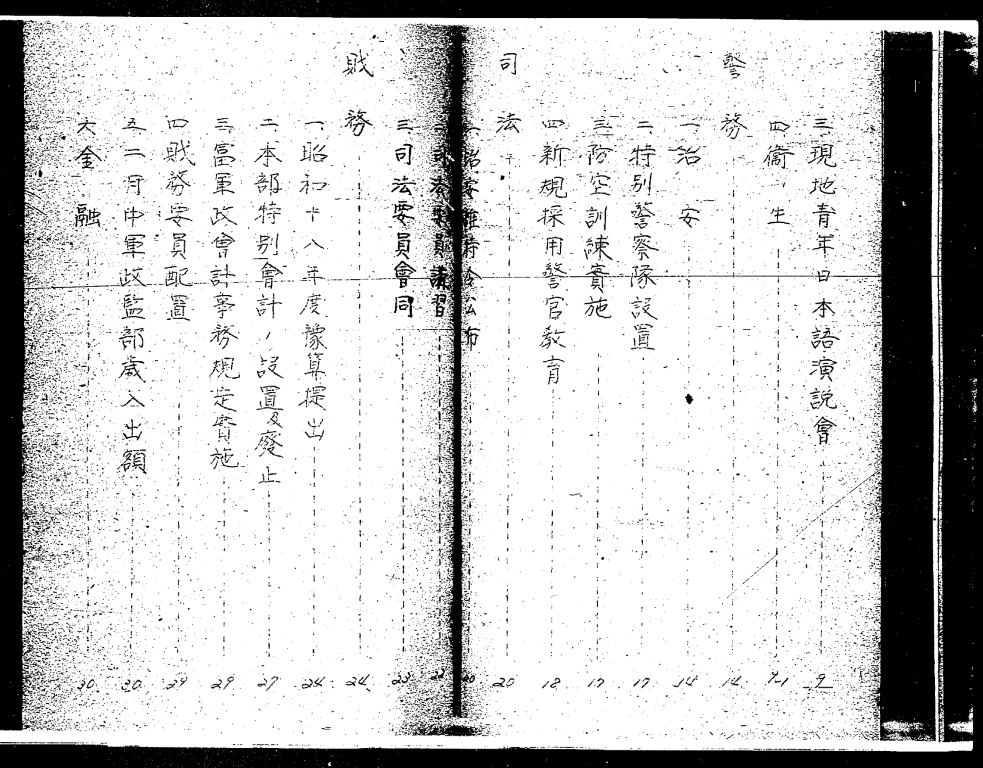 三、現地青年日本語演說會 9
四、衞生
警務 14
一、治安 14
二、特別警察隊設置 17
三、防空訓練實施 17
四、新規採用警官教育 18
司法 20
一、治安維持令公布 20
二、司法委員講習 22
三、司法委員會同 23
財務 24
一、昭和十八年度豫算提出 24
二、本部特別會計ノ設置及廢止 27
三、富軍政會計事務規定實施 29
四、財務委員配置 29
五、二月中軍政監部歲入出額 30
六、金融 30